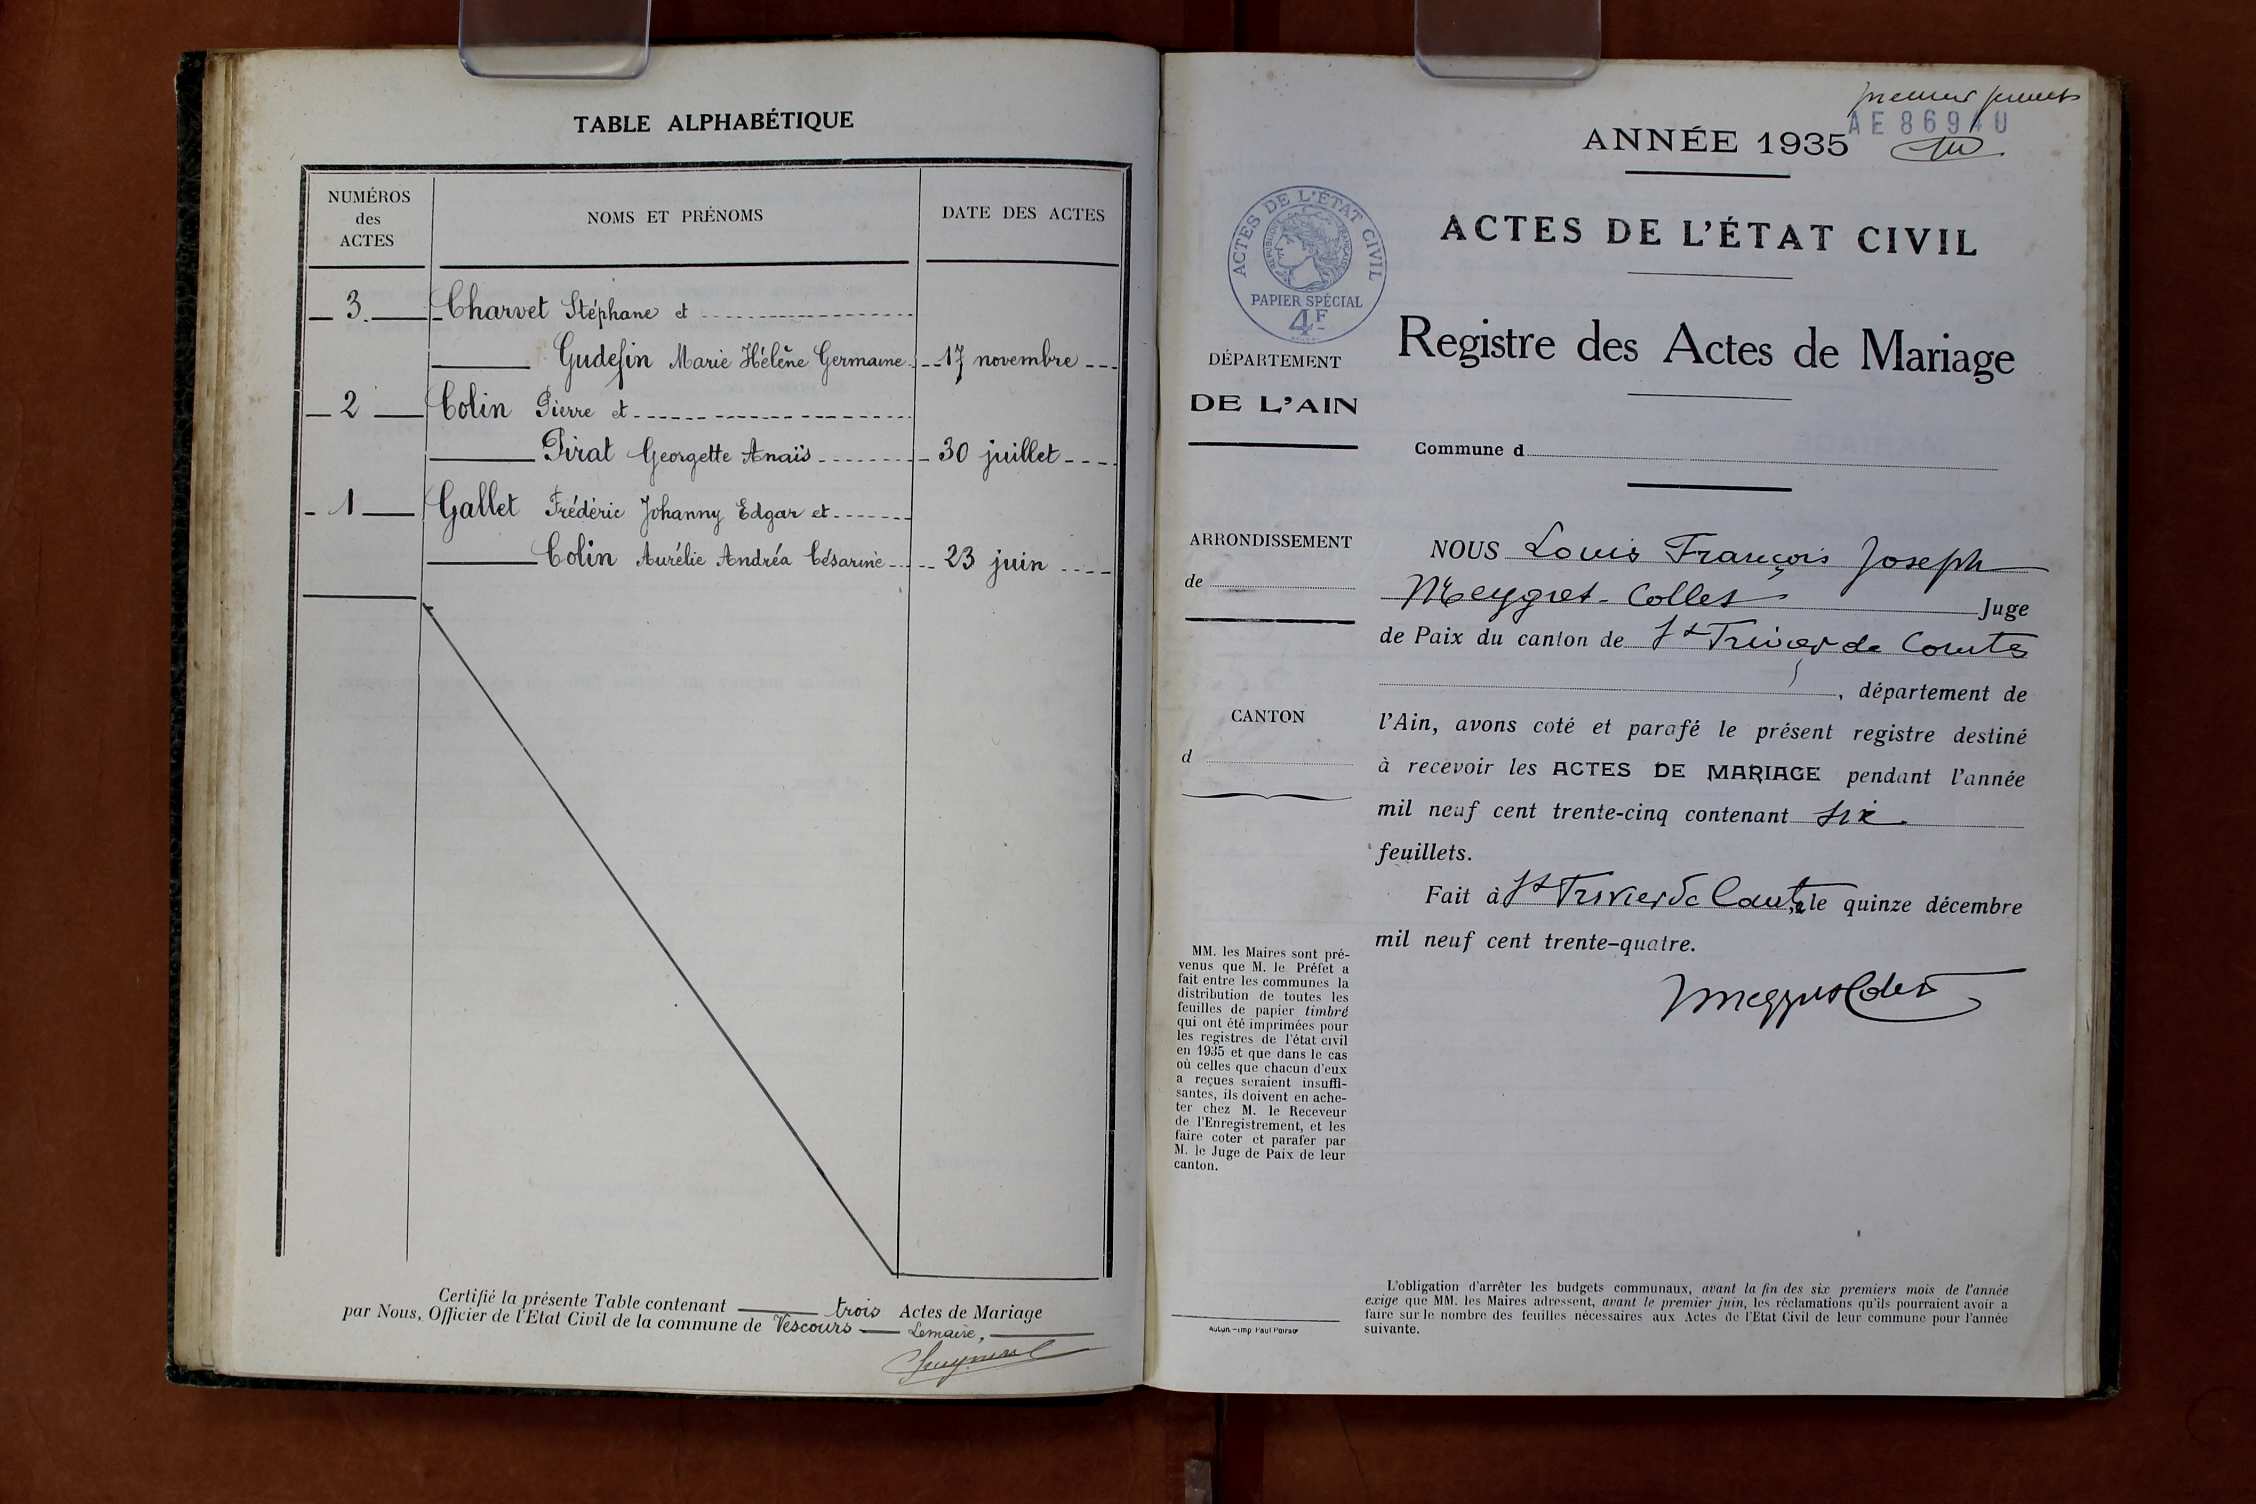 TABLE ALPHABÉTIQUE
NUMÉROS
des
ACTES
NOMS ET PRÉNOMS
DATE DES ACTES
3. Charvet Stéphane et
Gudefin Marie Hélène Germaine 17 novembre
2 Colin Pierre et
Pirat Georgette Anaïs 30 juillet
1 Gallet Frédéric Johanny Edgar et
Colin Aurélie Andréa Césarine 23 juin
Certifié la présente Table contenant trois Actes de Mariage
par Nous, Officier de l'Etat Civil de la commune de Vescours Lemaire,
premier
AE 86940
ANNÉE 1935
ACTES DE L'ÉTAT CIVIL
ACTES DE L'ÉTAT CIVIL
RÉPUBLIQUE FRANÇAISE
PAPIER SPÉCIAL
4F
Registre des Actes de Mariage
DÉPARTEMENT
DE L'AIN
Commune d
ARRONDISSEMENT
de
CANTON
d
NOUS Louis François Joseph
Meygret-Collet Juge
de Paix du canton de St Trivier de Courtes
, département de
l'Ain, avons coté et parafé le présent registre destiné
à recevoir les ACTES DE MARIAGE pendant l'année
mil neuf cent trente-cinq contenant six
feuillets.
Fait à St Trivier de Courtes, le quinze décembre
mil neuf cent trente-quatre.
MM. les Maires sont pré-
venus que M. le Préfet a
fait entre les communes la
distribution de toutes les
feuilles de papier timbré
qui ont été imprimées pour
les registres de l'état civil
en 1935 et que dans le cas
où celles que chacun d'eux
a reçues seraient insuffi-
santes, ils doivent en ache-
ter chez M. le Receveur
de l'Enregistrement, et les
faire coter et parafer par
M. le Juge de Paix de leur
canton.
L'obligation d'arrêter les budgets communaux, avant la fin des six premiers mois de l'année
exige que MM. les Maires adressent, avant le premier juin, les réclamations qu'ils pourraient avoir a
faire sur le nombre des feuilles nécessaires aux Actes de l'Etat Civil de leur commune pour l'année
suivante.
Autun - Imp Paul